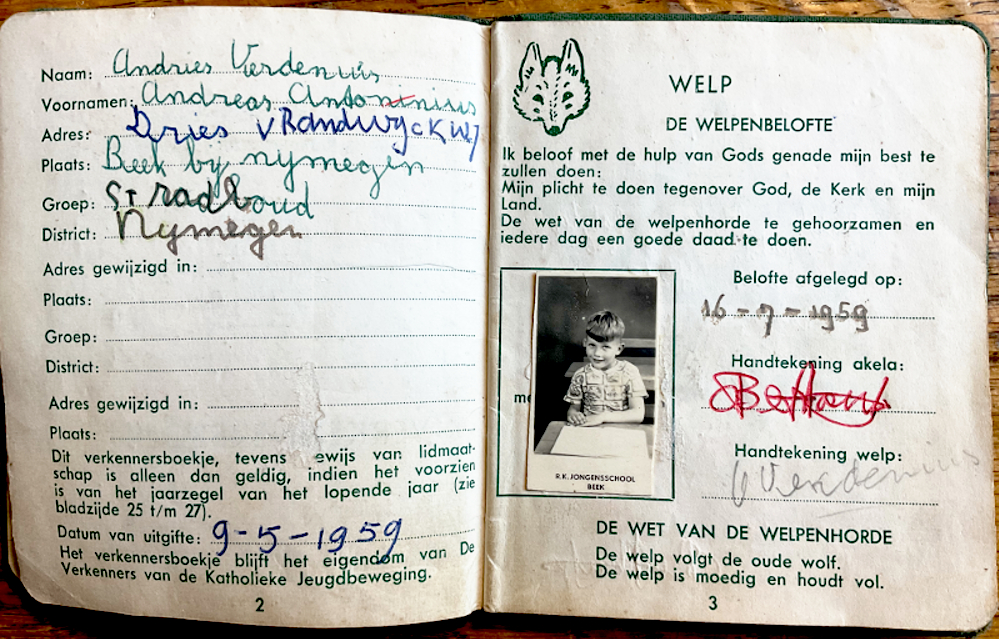 Naam: Andries Verdenius
Voornamen: Andreas Antoninius
Adres: Dries v Randwyck W
Plaats: Beek by nymegen
Groep: St radboud
District: Nymegen
Adres gewijzigd in:
Plaats:
Groep:
District:
Adres gewijzigd in:
Plaats:
Dit verkennersboekje, tevens ewijs van lidmaat-
schap is alleen dan geldig, indien het voorzien
is van het jaarzegel van het lopende jaar (zie
bladzijde 25 t/m 27).
Datum van uitgifte: 9-5-1959
Het verkennersboekje blijft het eigendom van De
Verkenners van de Katholieke Jeugdbeweging.
2
WELP
DE WELPENBELOFTE
Ik beloof met de hulp van Gods genade mijn best te
zullen doen:
Mijn plicht te doen tegenover God, de Kerk en mijn
Land.
De wet van de welpenhorde te gehoorzamen en
iedere dag een goede daad te doen.
Belofte afgelegd op:
16-7-1959
Handtekening akela:
Handtekening welp:
Verdenius
R.K. JONGENSSCHOOL
BEEK
DE WET VAN DE WELPENHORDE
De welp volgt de oude wolf.
De welp is moedig en houdt vol.
3